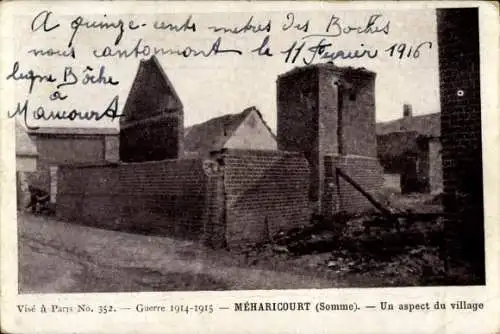 A quinze-cents mètres des Boches
nous cantonnant le 11 Février 1916
ligne Bôche
à
Mamcourt
Visé à Paris No. 352. - Guerre 1914-1915 - MÉHARICOURT (Somme). - Un aspect du village